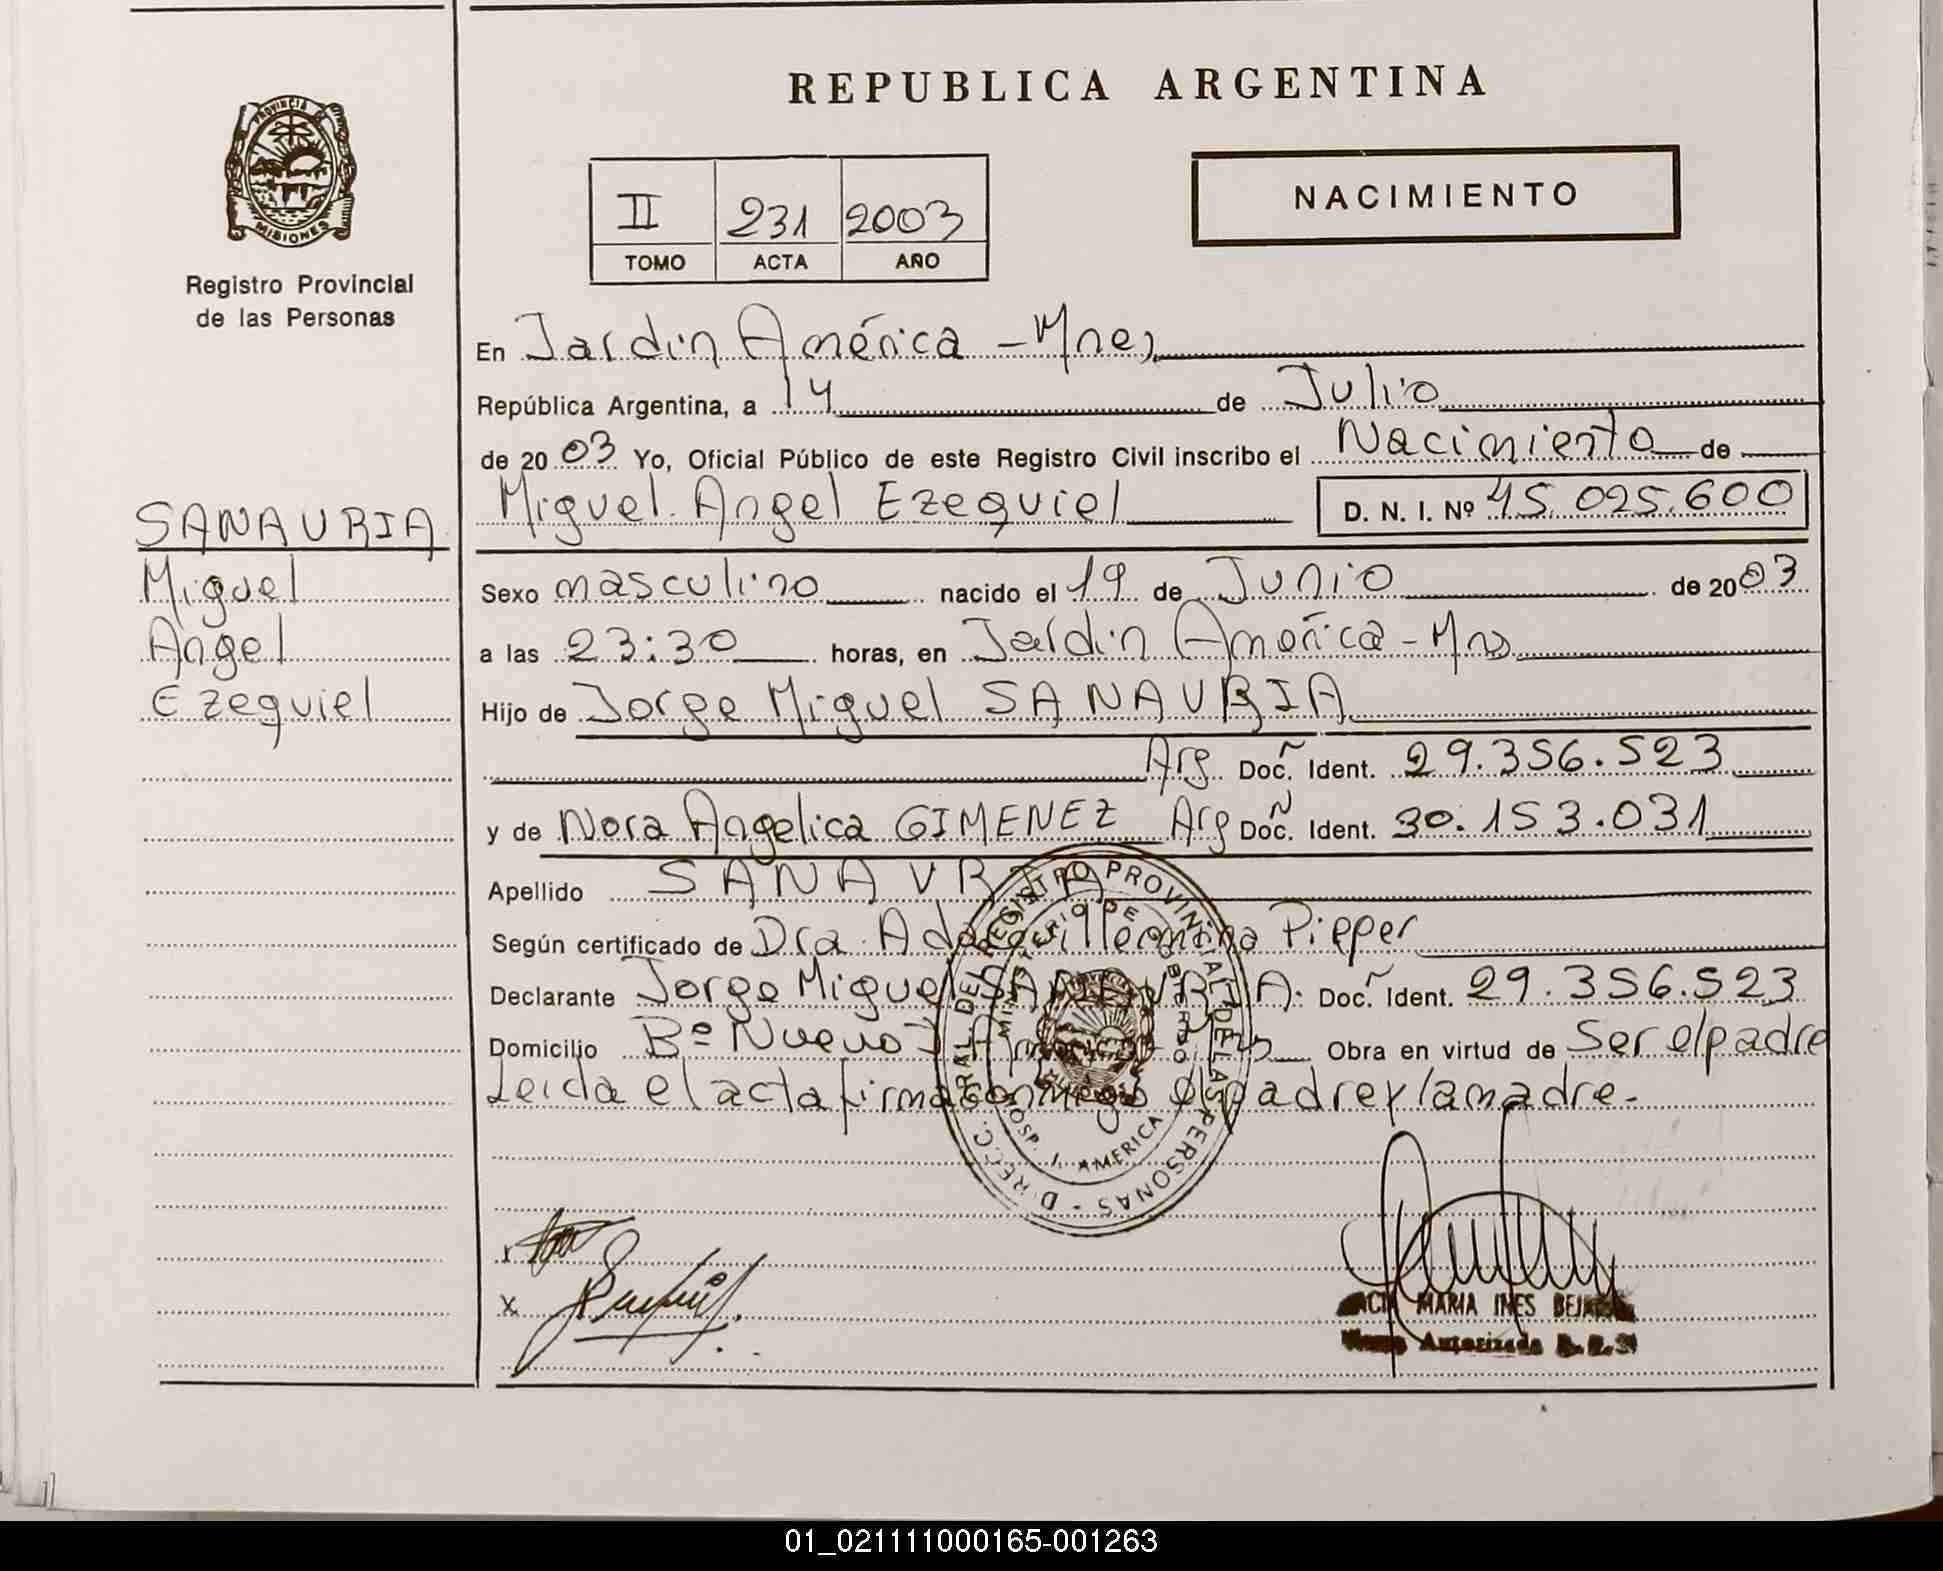 REPUBLICA ARGENTINA
PROVINCIA
MISIONES
Registro Provincial
de las Personas
NACIMIENTO
II 231 2003
TOMO ACTA AÑO
En Jardin América - Mnes
República Argentina, a 14 de Julio
de 2003 Yo, Oficial Público de este Registro Civil inscribo el Nacimiento de
Miguel Angel Ezequiel D. N. I. Nº 45.025.600
SANAURIA
Miguel
Angel
Ezequiel
Sexo masculino nacido el 19 de Junio de 2003
a las 23:30 horas, en Jardin América - Mns
Hijo de Jorge Miguel SANAURIA
Arg. Doc. Ident. 29.356.523
y de Nora Angelica GIMENEZ Arg Doc. Ident. 30.153.031
Apellido SANAURIA
Según certificado de Dra. Ada Guillermina Pipper
Declarante Jorge Miguel SANAURIA. Doc. Ident. 29.356.523
Domicilio Bº Nuevo J América Mns Obra en virtud de Ser el padre
Leida el acta firma conmigo el padre y la madre.-
DIRECC. GRAL. DEL REGISTRO PROVINCIAL DE LAS PERSONAS
MINISTERIO DE GOBIERNO
HOSP. J. AMERICA
x
x
MARIA INES
Autorizada
01_021111000165-001263